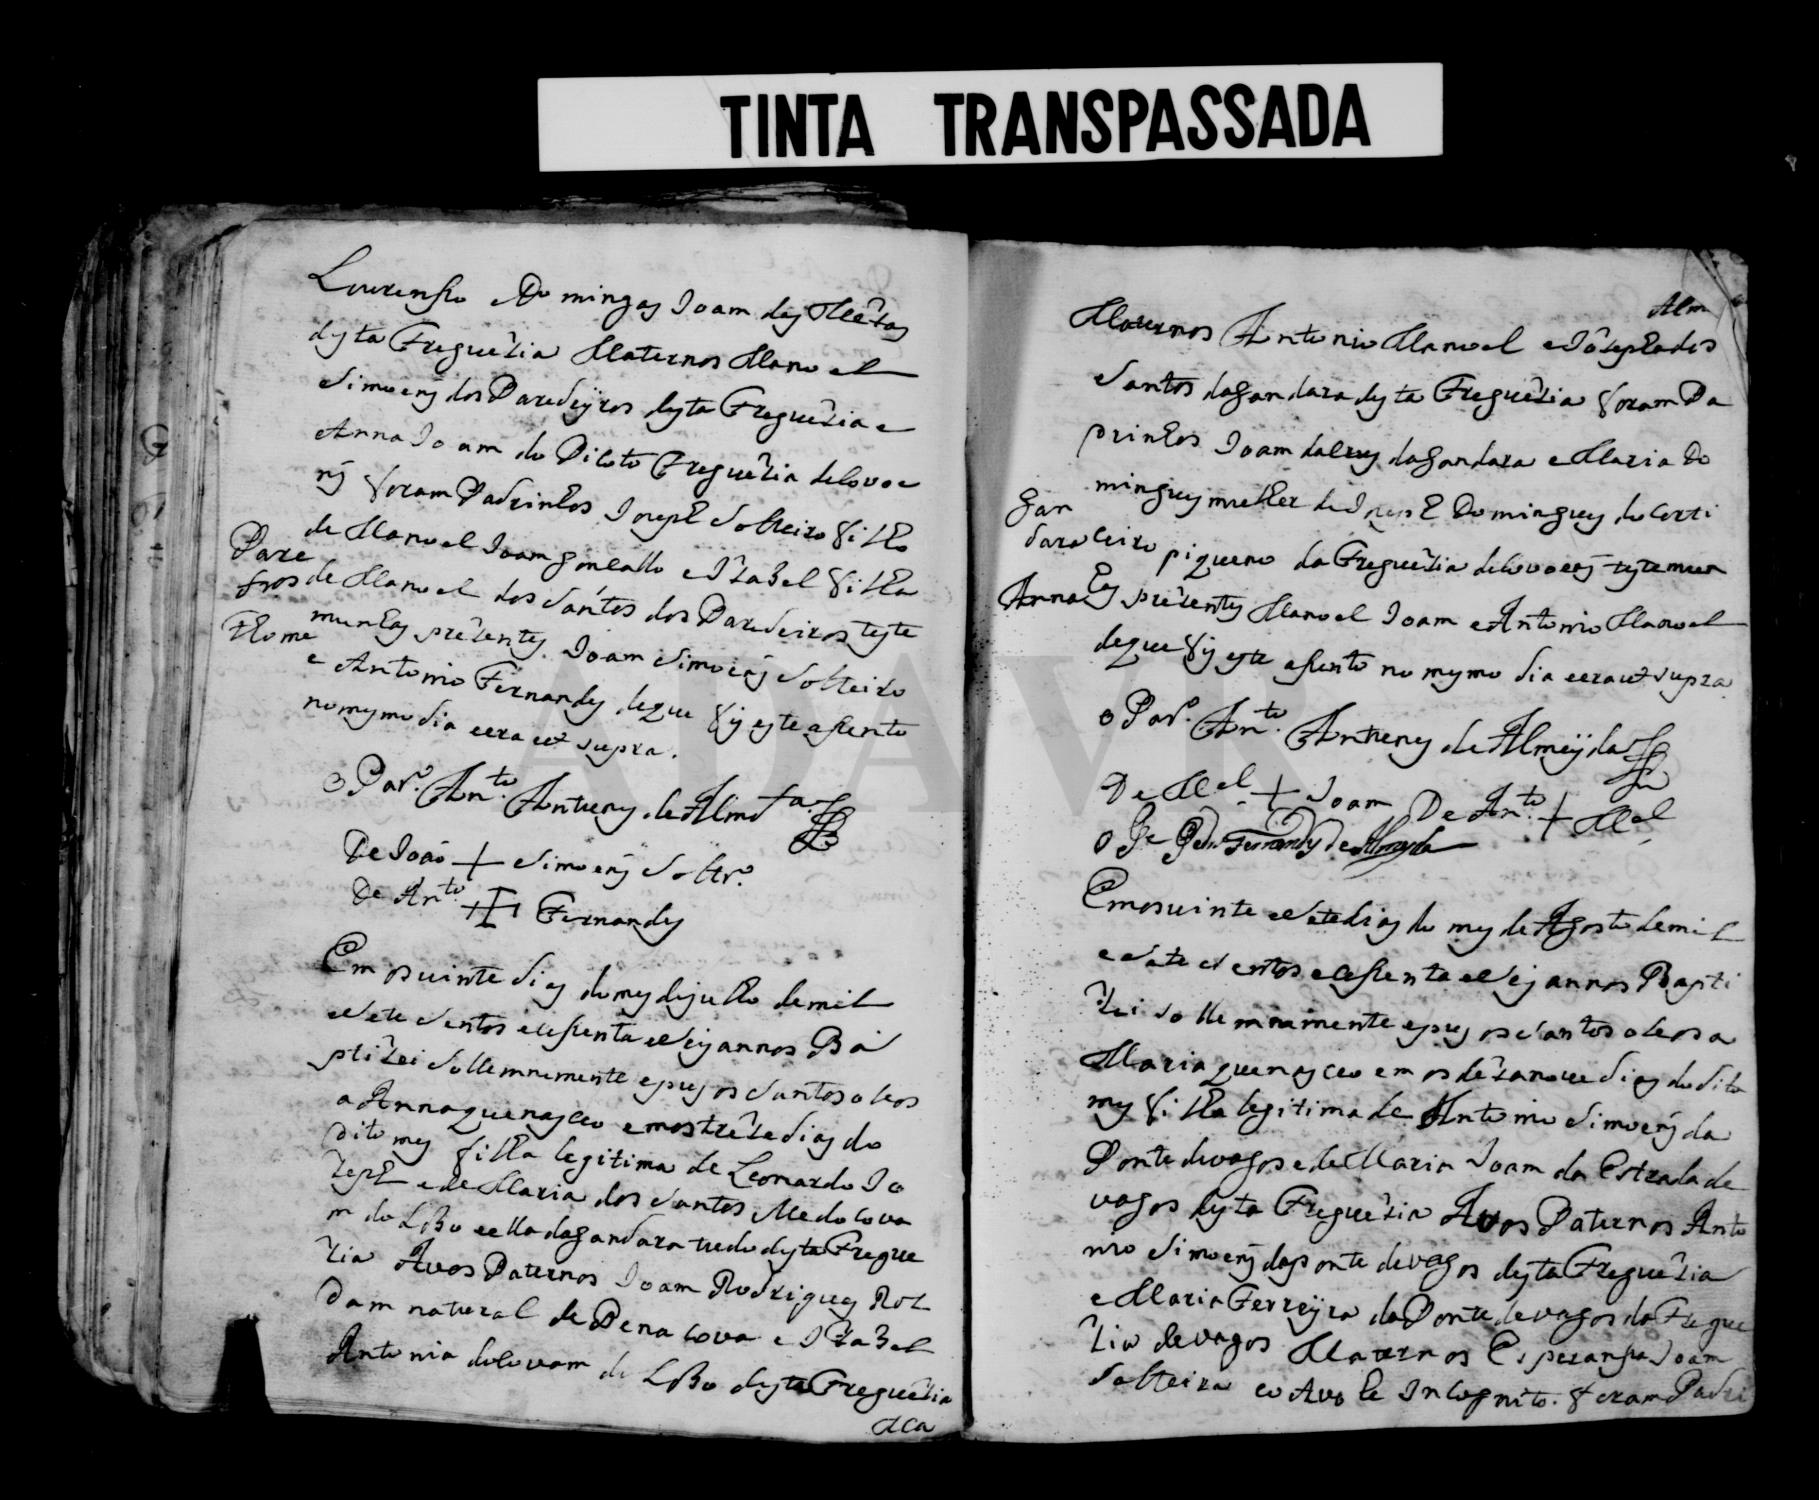 TINTA TRANSPASSADA
Lourenso e Domingas Joam das Mêtas
dysta Freguezia Maternos Manoel
Simoens dos Paredeyros dysta Freguezia e
Anna Joam do Picoto Freguezia de Covoe
ns foram Padrinhos Joseph Solteiro filho
de Manoel Joam Gonsallo e Izabel filha
de Manoel dos Santos dos Paredeiros teste
munhas prezentes Joam Simoens Solteiro
e Antonio Fernandes de que fis este asento
no mesmo dia e era ut supra.
Pare
yros
Thome
O Par.º An.to Antunes de Almd.a
De João + Simoens Soltr.º
De An.to + Fernandes
Em os vinte dias do mes de julho de mil
e sete Sentos e cesenta e Seis annos Ba
ptizei Sollemnemente e pus os Santos oleos
a Anna que nasceo em os treze dias do
dito mes filha legitima de Leonardo Jo
zeph e de Maria dos Santos elle do Cova
m do Lobo e ella da Gandara tudo desta Fregue
zia Avos Paternos Joam Rodrigues Rol
dam natural de Pena Cova e Izabel
Antonia do Covam do Lobo desta Freguezia
Ma
Maternos Antonio Manoel e Jozepha dos
Santos da Gandara desta Freguezia foram Pa
drinhos Joam da Crus da Gandara e Maria Do
mingues mulher de Joseph Domingues do Corti
ceiro piqueno da Freguezia de Covoens testemun
has prezentes Manoel Joam e Antonio Manoel
de que fis este asento no mesmo dia e era ut supra
Gan
dara
Anna
o Par.º An.to Antunes de Almeyda
De M.el + Joam De An.to + M.el
Em os vinte e Sete dias do mes de Agosto de mil
e Sete Sentos e cesenta e Seis annos Bapti
zei Sollemnamente e pus os Santos oleos a
Maria que nasceo em os dezanove dias do dito
mes filha legitima de Antonio Simoens da
Ponte de vagos e de Maria Joam da Estrada de
vagos desta Freguezia Avos Paternos Anto
nio Simoens da ponte de vagos desta Freguezia
e Maria Ferreyra da Ponte de vagos da Fregue
zia de vagos Maternos Esperansa Joam
Solteira e o Avo he Incognito. foram Padri
ADAVR